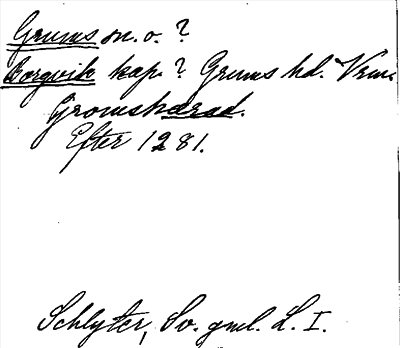 Grums sn. o. ?
Borgvik kap. ? Grums hd. Vrml.
Gromshærad.
Efter 1281.
Schlyter, Sv. gml. L. I.